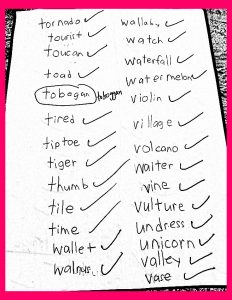 tornado
tourist
toucan
toad
tobogan toboggan
tired
tiptoe
tiger
thumb
tile
time
wallet
walrus
wallaby
watch
waterfall
watermelon
violin
village
volcano
waiter
vine
vulture
undress
unicorn
valley
vase